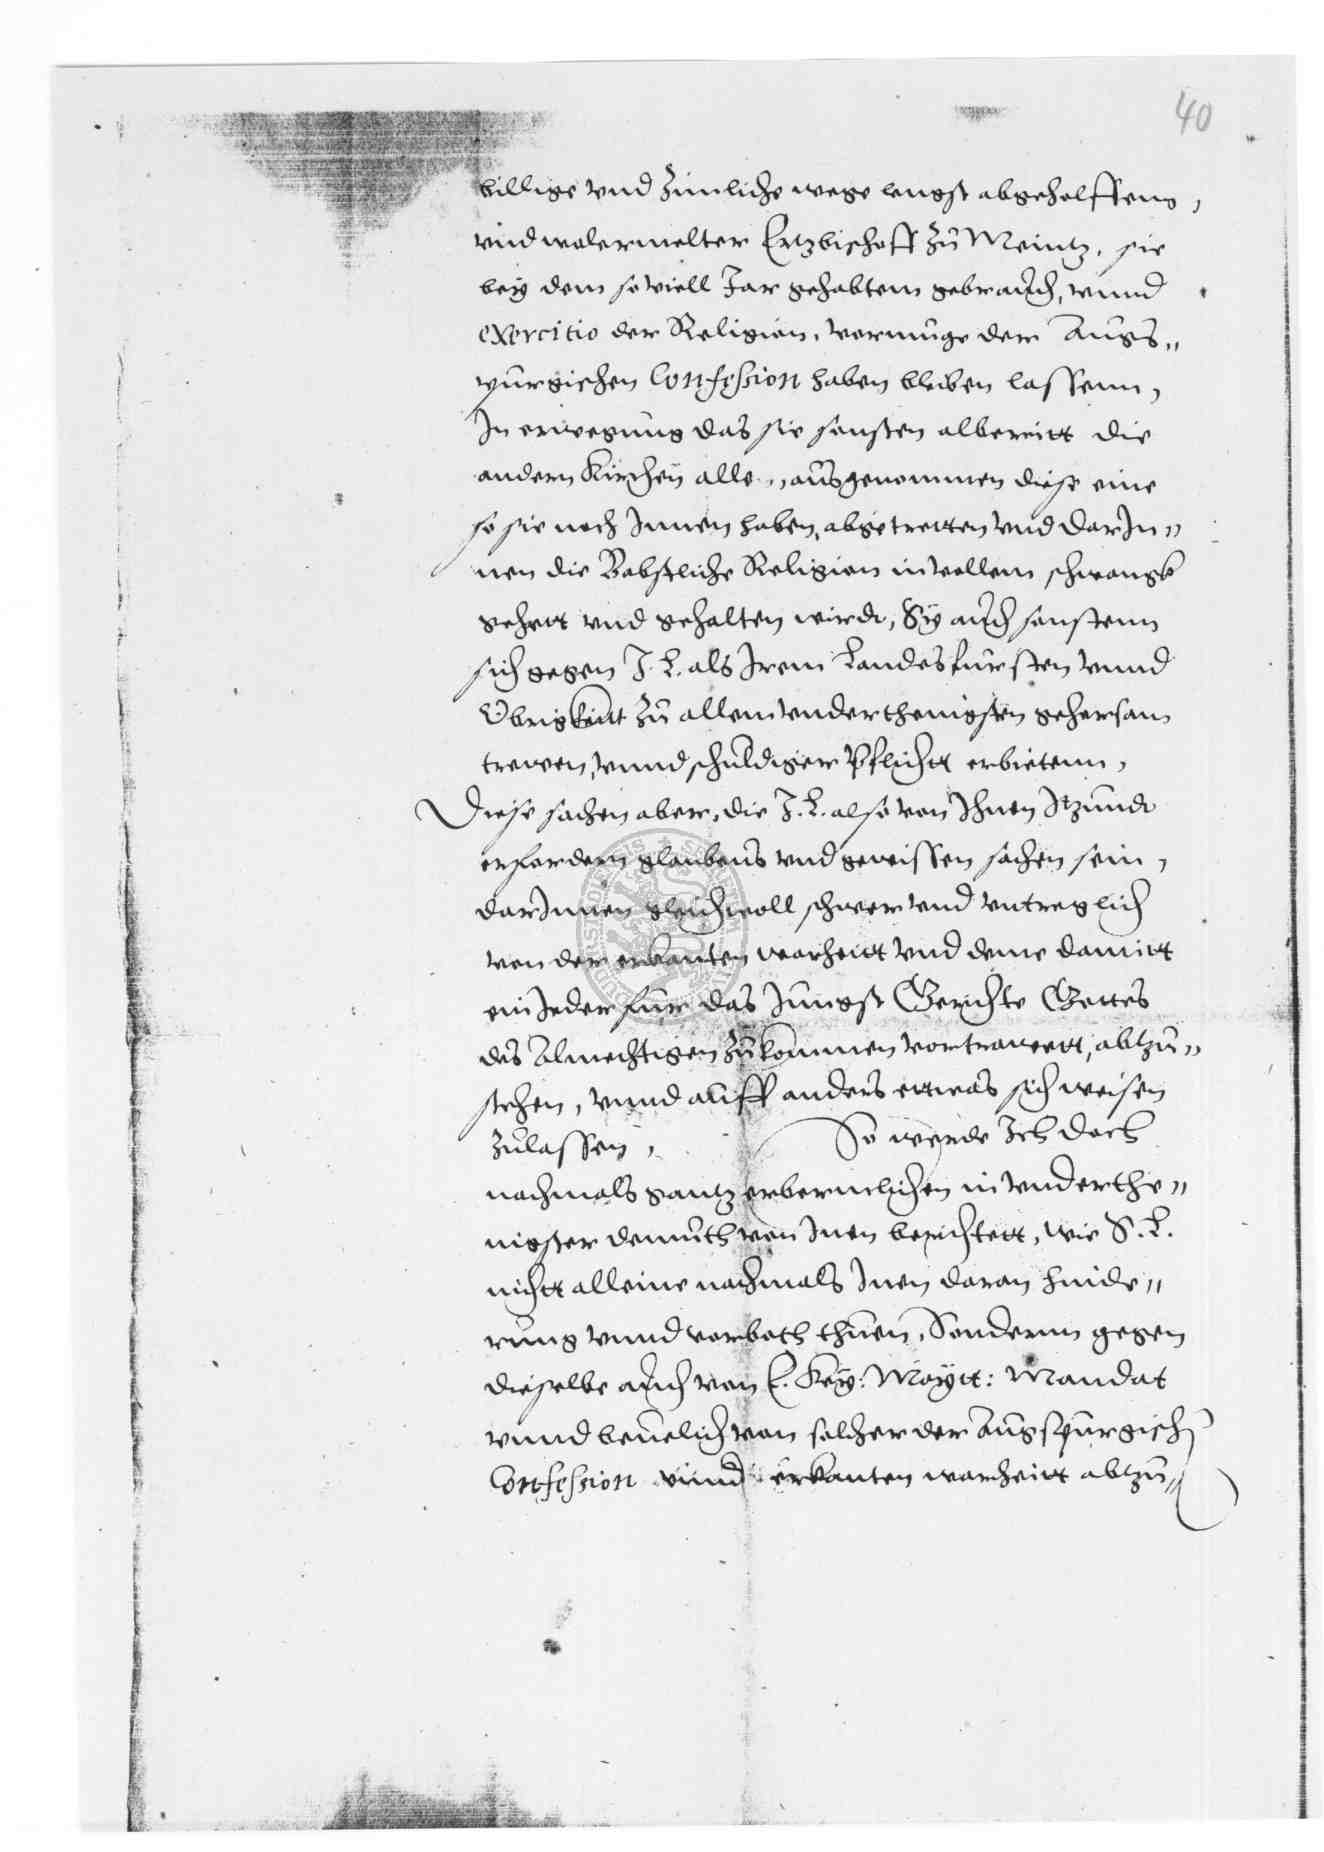 40
billige vnd zimliche wege lengst abgeholffenn,
vnd wolermelter Ertzbischoff zů Meintz, sie
bey dem so viell Jar gehabtem gebrauch, vnnd
exercitio der Religion, vermůge der Augs„
půrgischen Confession haben bleiben lassenn,
In erwegung das sie sonsten albereitt die
andern Kirchen alle, ausgenommen diese eine
so sie noch Innen haben, abgetretten vnd darIn„
nen die Bebstliche Religion in vollem schwangk
gehett vnd gehalten wirdt, Sy auch sonstenn
sich gegen J. L. als Irem Landesfursten vnnd
Obrigkeitt zů allem vnderthenigsten gehorsam
trewen, vnnd schuldiger Pflichtt erbietenn,
Diese sachen aber, die J. L. also von Ihnen Itzundt
erfordern glaubens vnd gewissen sachen sein,
darInnen gleichwoll schwer vnd vntreglich
von der erkanten warheitt vnd deme damitt
ein Jeder für das Jungst Gerichte Gottes
des Almechtigen zů kommen vortrawett, abtzů„
stehen, vnnd auff anders ettwas sich weisen
zůlassen,
So werde Ich doch
nochmals gantz erbermlichen in vnderthe„
nigster demuth von Inen berichtett, wie S. L.
nichtt alleine nochmals Inen daran hinde„
rung vnnd verboth thuen, Sondernn gegen
dieselbe auch von E. Key: Maytt: Mandat
vnnd beuelich von solcher der Augspurgisch
Confession vnnd erkanten warheitt abtzů„